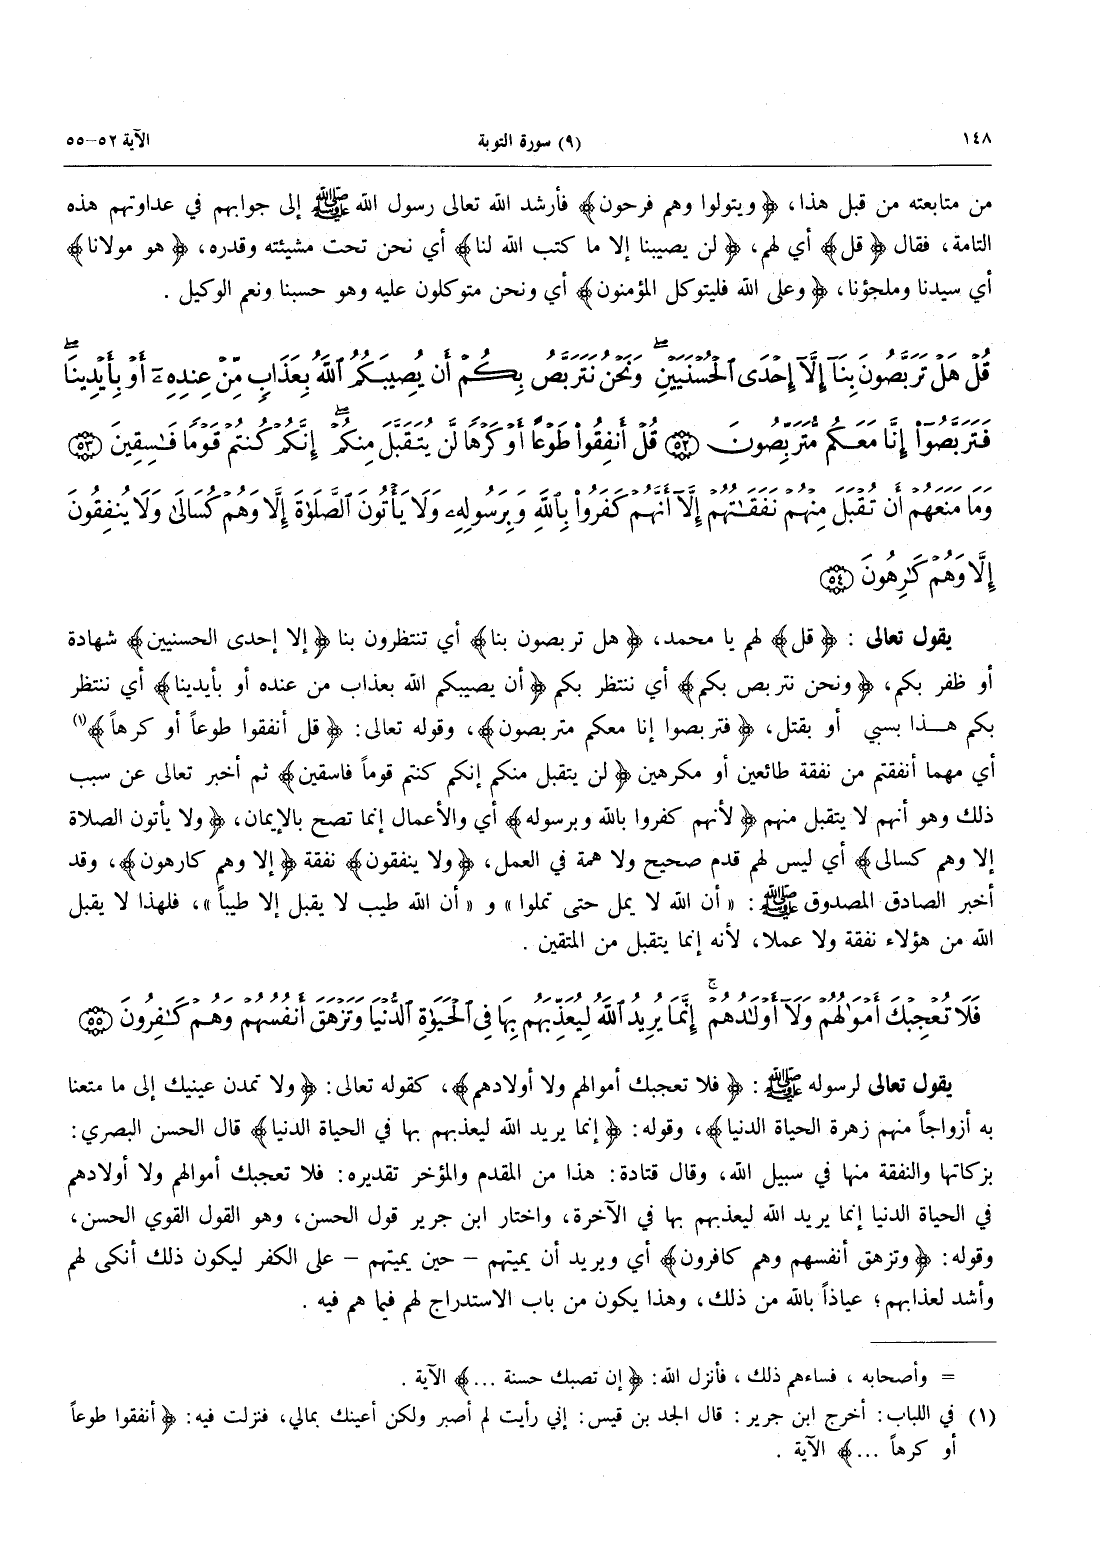 ١٤٨ (٩) سورة التوبة الآية ٥٢-٥٥
من متابعته من قبل هذا، ﴿ويتولوا وهم فرحون﴾ فأرشد الله تعالى رسول الله ﷺ إلى جوابهم في عداوتهم هذه
التامة، فقال ﴿قل﴾ أي لهم، ﴿لن يصيبنا إلا ما كتب الله لنا﴾ أي نحن تحت مشيئته وقدره، ﴿هو مولانا﴾
أي سيدنا وملجؤنا، ﴿وعلى الله فليتوكل المؤمنون﴾ أي ونحن متوكلون عليه وهو حسبنا ونعم الوكيل .
قُلْ هَلْ تَرَبَّصُونَ بِنَآ إِلَّآ إِحْدَى ٱلْحُسْنَيَيْنِ ۖ وَنَحْنُ نَتَرَبَّصُ بِكُمْ أَن يُصِيبَكُمُ ٱللَّهُ بِعَذَابٍ مِّنْ عِندِهِۦٓ أَوْ بِأَيْدِينَا ۖ
فَتَرَبَّصُوٓا۟ إِنَّا مَعَكُم مُّتَرَبِّصُونَ ﴿٥٢﴾ قُلْ أَنفِقُوا۟ طَوْعًا أَوْ كَرْهًا لَّن يُتَقَبَّلَ مِنكُمْ ۖ إِنَّكُمْ كُنتُمْ قَوْمًا فَـٰسِقِينَ ﴿٥٣﴾
وَمَا مَنَعَهُمْ أَن تُقْبَلَ مِنْهُمْ نَفَقَـٰتُهُمْ إِلَّآ أَنَّهُمْ كَفَرُوا۟ بِٱللَّهِ وَبِرَسُولِهِۦ وَلَا يَأْتُونَ ٱلصَّلَوٰةَ إِلَّا وَهُمْ كُسَالَىٰ وَلَا يُنفِقُونَ
إِلَّا وَهُمْ كَـٰرِهُونَ ﴿٥٤﴾
يقول تعالى : ﴿قل﴾ لهم يا محمد، ﴿هل تربصون بنا﴾ أي تنتظرون بنا ﴿إلا إحدى الحسنيين﴾ شهادة
أو ظفر بكم، ﴿ونحن نتربص بكم﴾ أي ننتظر بكم ﴿أن يصيبكم الله بعذاب من عنده أو بأيدينا﴾ أي ننتظر
بكم هــذا بسبي أو بقتل، ﴿فتربصوا إنا معكم متربصون﴾، وقوله تعالى: ﴿قل أنفقوا طوعاً أو كرهاً﴾(١)
أي مهما أنفقتم من نفقة طائعين أو مكرهين ﴿لن يتقبل منكم إنكم كنتم قوماً فاسقين﴾ ثم أخبر تعالى عن سبب
ذلك وهو أنهم لا يتقبل منهم ﴿لأنهم كفروا بالله وبرسوله﴾ أي والأعمال إنما تصح بالإيمان، ﴿ولا يأتون الصلاة
إلا وهم كسالى﴾ أي ليس لهم قدم صحيح ولا همة في العمل، ﴿ولا ينفقون﴾ نفقة ﴿إلا وهم كارهون﴾، وقد
أخبر الصادق المصدوق ﷺ : «أن الله لا يمل حتى تملوا» و «أن الله طيب لا يقبل إلا طيباً»، فلهذا لا يقبل
الله من هؤلاء نفقة ولا عملا، لأنه إنما يتقبل من المتقين .
فَلَا تُعْجِبْكَ أَمْوَٰلُهُمْ وَلَآ أَوْلَـٰدُهُمْ ۚ إِنَّمَا يُرِيدُ ٱللَّهُ لِيُعَذِّبَهُم بِهَا فِى ٱلْحَيَوٰةِ ٱلدُّنْيَا وَتَزْهَقَ أَنفُسُهُمْ وَهُمْ كَـٰفِرُونَ ﴿٥٥﴾
يقول تعالى لرسوله ﷺ : ﴿فلا تعجبك أموالهم ولا أولادهم﴾، كقوله تعالى: ﴿ولا تمدن عينيك إلى ما متعنا
به أزواجاً منهم زهرة الحياة الدنيا﴾، وقوله: ﴿إنما يريد الله ليعذبهم بها في الحياة الدنيا﴾ قال الحسن البصري:
بزكاتها والنفقة منها في سبيل الله، وقال قتادة: هذا من المقدم والمؤخر تقديره: فلا تعجبك أموالهم ولا أولادهم
في الحياة الدنيا إنما يريد الله ليعذبهم بها في الآخرة، واختار ابن جرير قول الحسن، وهو القول القوي الحسن،
وقوله: ﴿وتزهق أنفسهم وهم كافرون﴾ أي ويريد أن يميتهم – حين يميتهم – على الكفر ليكون ذلك أنكى لهم
وأشد لعذابهم؛ عياذاً بالله من ذلك، وهذا يكون من باب الاستدراج لهم فيما هم فيه .
= وأصحابه ، فساءهم ذلك ، فأنزل الله: ﴿إن تصبك حسنة ...﴾ الآية .
(١) في اللباب: أخرج ابن جرير: قال الجد بن قيس: إني رأيت لم أصبر ولكن أعينك بمالي، فنزلت فيه: ﴿أنفقوا طوعاً
أو كرهاً ...﴾ الآية .